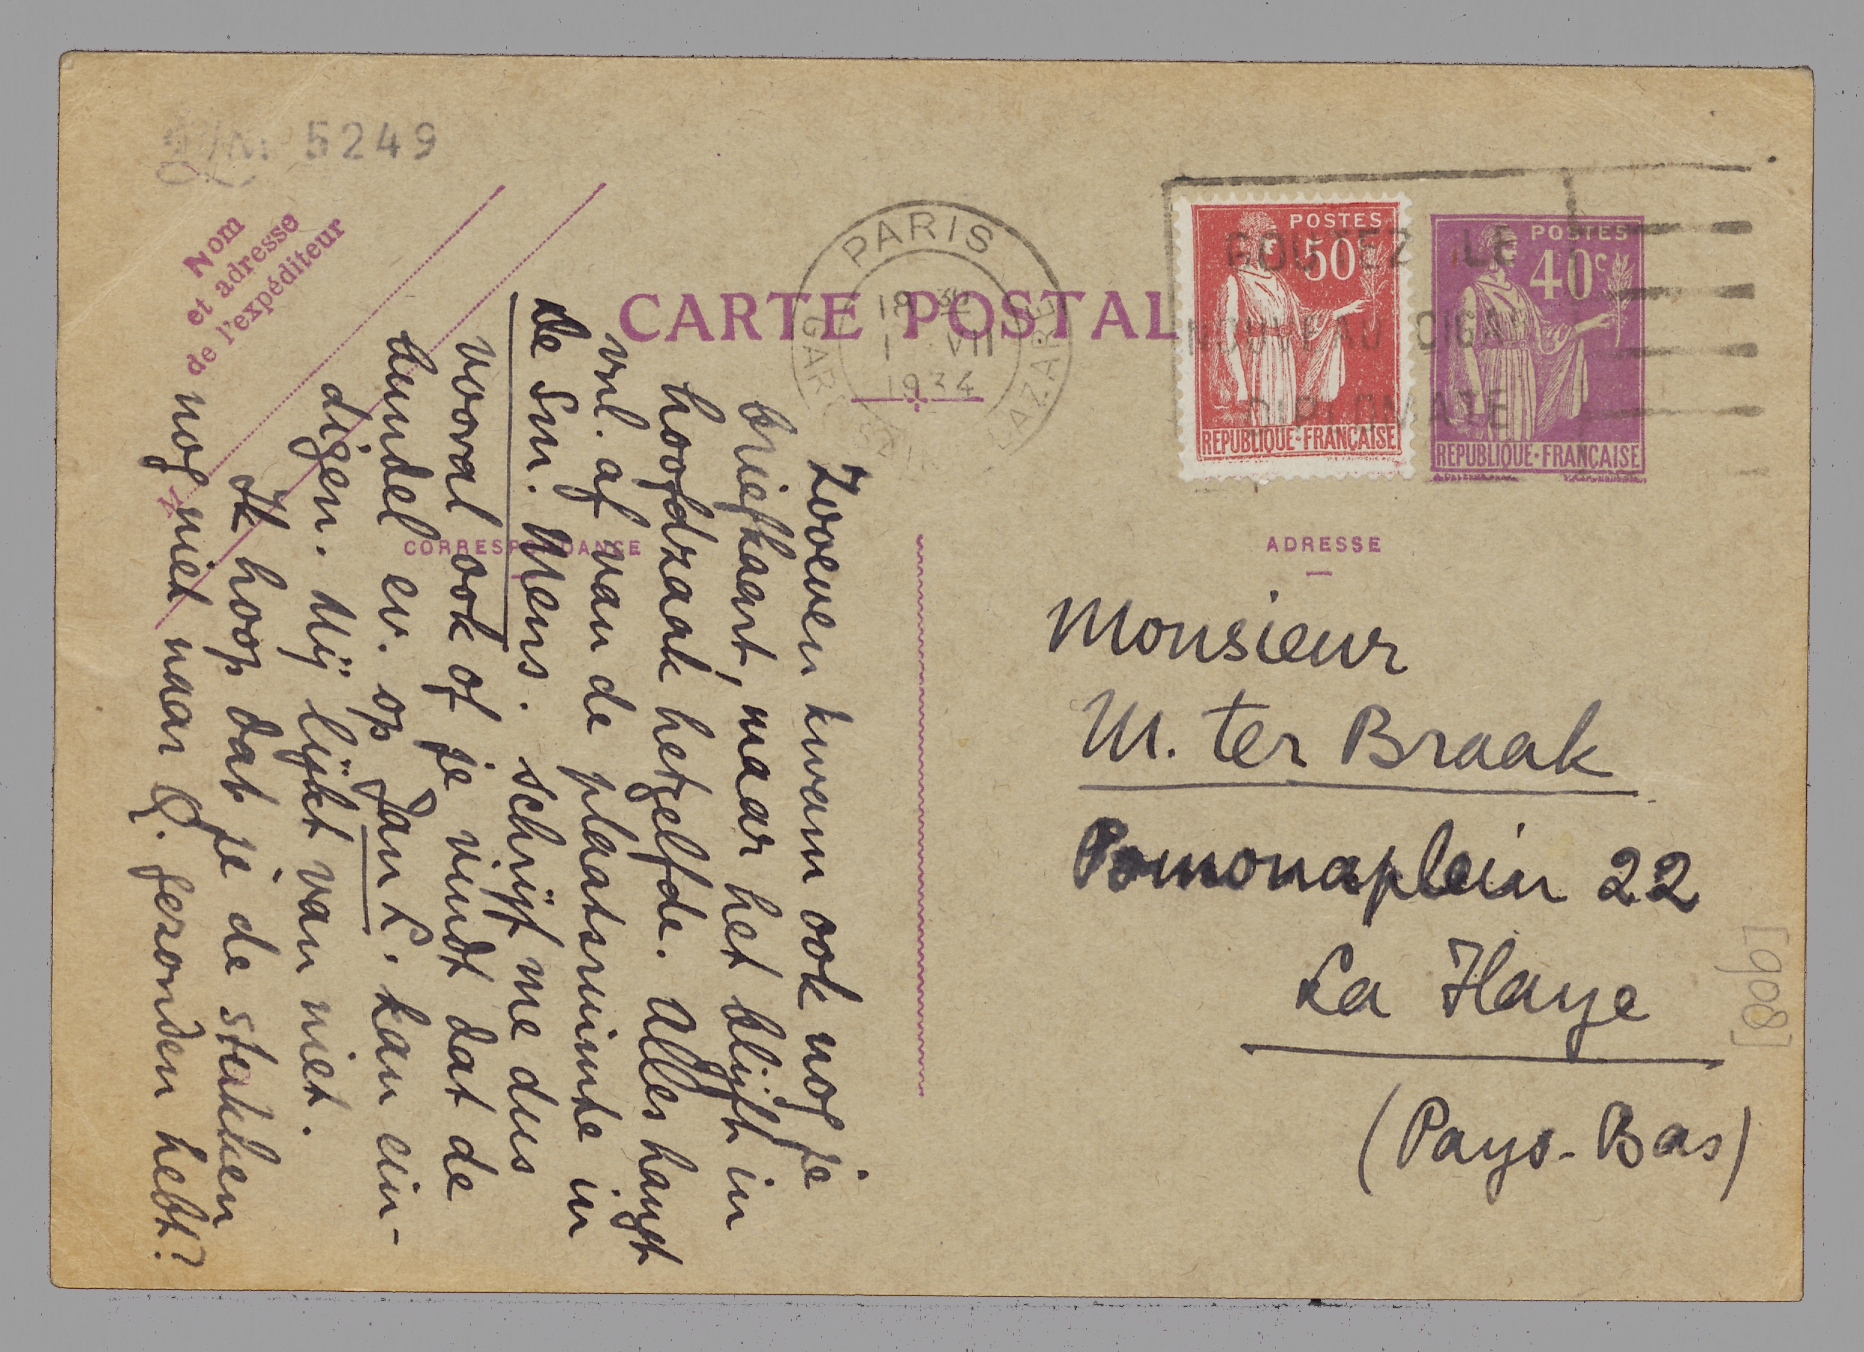 5249
Nom
et adresse
de l'expéditeur
CARTE POSTAL
PARIS
GARE LAZARE
18 30
1 VII
1934
POSTES
50c
REPUBLIQUE-FRANÇAISE
POSTES
40c
REPUBLIQUE-FRANÇAISE
GOUTEZ LE
NOUVEAU CIGA
DIPLOMATE
CORRESPONDANCE
ADRESSE
Zooeven kwam ook nog je
briefkaart, maar het blijft in
hoofdzaak hetzelfde. Alles hangt
vnl. af van de plaatsruimte in
de Sm. Mens. Schrijf me dus
vooral ook of je vindt dat de
bundel ev. op Jan L. kan ein-
digen. Mij lijkt van niet.
Ik hoop dat je de stukken
nog niet naar Q. gezonden hebt?
Monsieur
M. ter Braak
Pomonaplein 22
La Haye
(Pays-Bas)
[908]